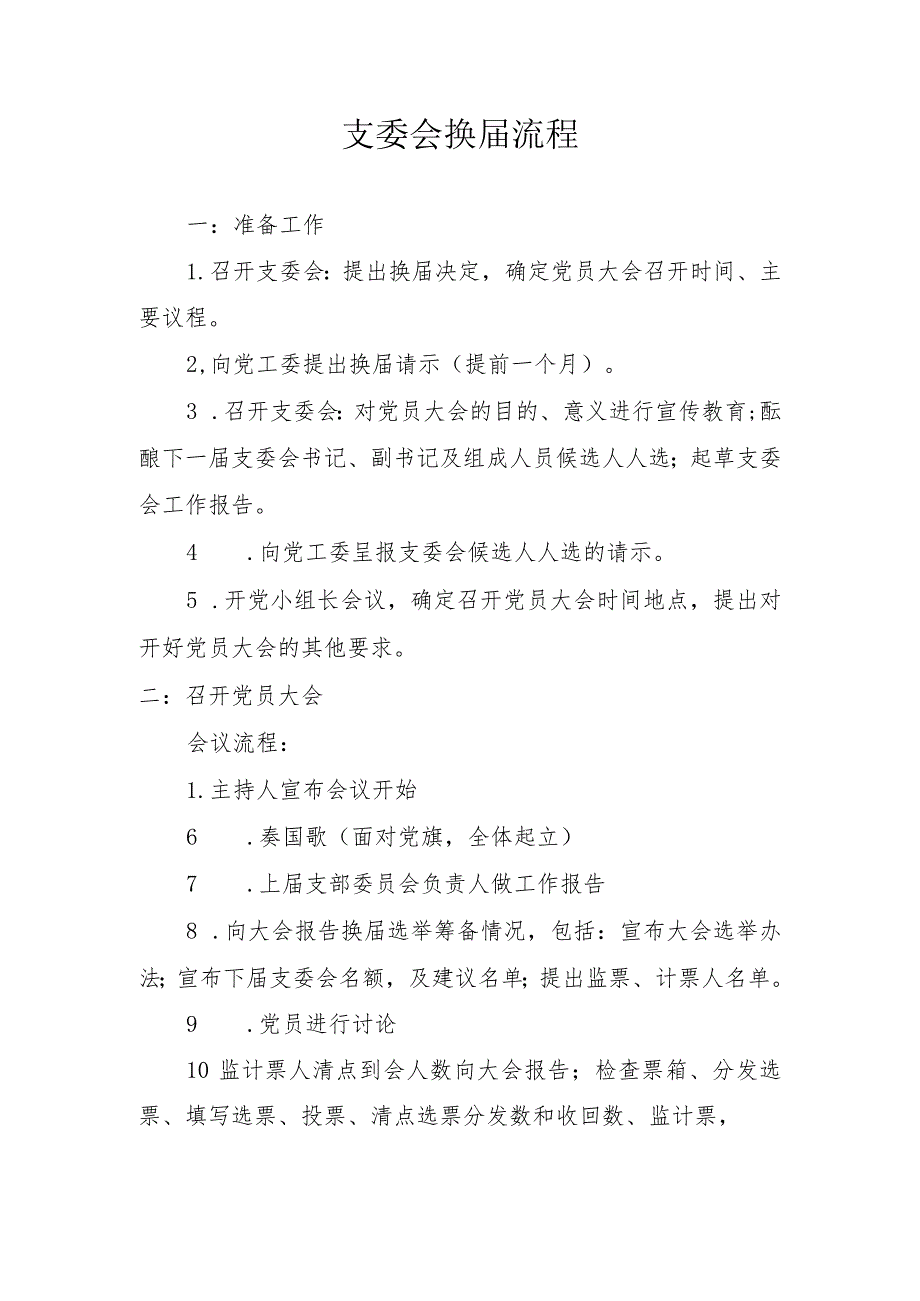 支委会换届流程
一：准备工作
1.召开支委会：提出换届决定，确定党员大会召开时间、主
要议程。
2,向党工委提出换届请示（提前一个月）。
3 .召开支委会：对党员大会的目的、意义进行宣传教育;酝
酿下一届支委会书记、副书记及组成人员候选人人选；起草支委
会工作报告。
4 .向党工委呈报支委会候选人人选的请示。
5 .开党小组长会议，确定召开党员大会时间地点，提出对
开好党员大会的其他要求。
二：召开党员大会
会议流程：
1.主持人宣布会议开始
6 .奏国歌（面对党旗，全体起立）
7 .上届支部委员会负责人做工作报告
8 .向大会报告换届选举筹备情况，包括：宣布大会选举办
法；宣布下届支委会名额，及建议名单；提出监票、计票人名单。
9 .党员进行讨论
10 监计票人清点到会人数向大会报告；检查票箱、分发选
票、填写选票、投票、清点选票分发数和收回数、监计票，